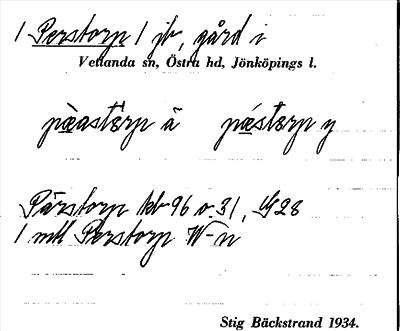 1 Perstorp / jb, gård i
Vetlanda sn, Östra hd, Jönköpings l.
pæastörp ä pæstørp y
Pärstorp kb 96 o. 31, G 28
1 mtl Perstorp W-n
Stig Bäckstrand 1934.